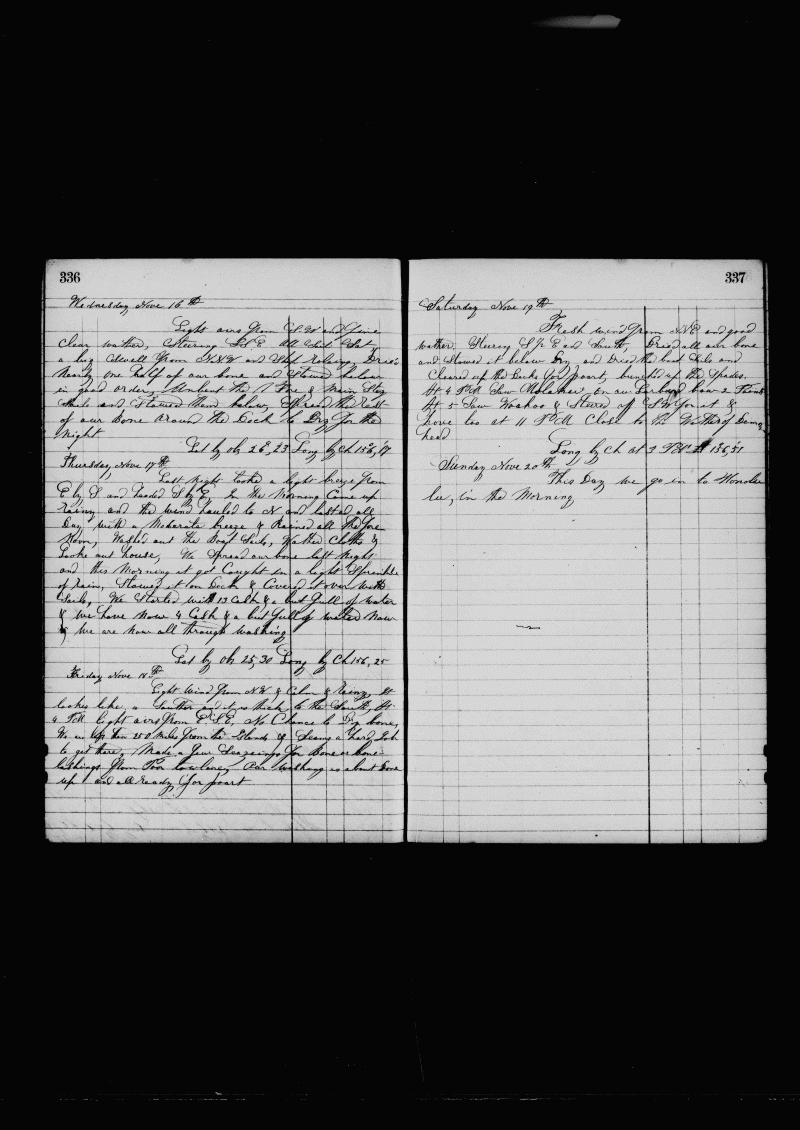 336
Wednesday Nove 16th
Light airs from S.W and fine
clear wather, Steering S.S.E All Sail Set
a big Swell from NNW and Ship Roling, Dried
Nearly one half of our bone and Stowed below
in good order, Unbent the Fore & Main Stay
Sails and Stowed them below, Spread the Rest
of our bone around the Deck to Dry for the
Night
Lat by ob 26,23 Long by Ch 156,17
Thursday, Nove 17th
Last Night tooke a light breeze from
E by S and headed S by E, In the Morning Came up
Rainy and the wind hauled to N and lasted all
Day, with a Moderate breeze & Rained all the fore
Noon, Washed out the Boat Sails, Washed Cloths &
Looke out house, We Spread our bone last Night
and this Morning it got Caught in a light Sprinkle
of Rain, Stowed it on Deck & Covered it over with
Sails, We Started with 13 Cask & a but full of water
& we have Now 4 Cask & a but full of water Now
& we are Now all through washing
Lat by ob 25,30 Long by Ch 156,25
Friday Nove 18th
Light Wind from N.W, & Calm & Rainy, it
lookes like a Souther and it is thick to the South, At
4 P.M. light airs from E.S.E, No Chance to Dry bone,
We are less than 250 Miles from the Islands & Seems a hard Job
to get there, Made a few Seazeings for bone or bone
lashings from Tow lowline, Our Washing is about Done
up and all Ready for poart
337
Saturday Nove 19th
Fresh wind from N.E and good
wather. Steering S/E and South, Dried all our bone
and Stowed it below Dry and Dried the boat Sails and
Cleared up the Decks for poart, bundled up the Spades.
At 4 P.M. Saw Molokai on our Larbord bow 2 Points
At 5 Saw Woahoo & Steared off S.W. for it &
hove too at 11 P.M. Close to the Northerd of Diamond
head
Long by Ch at 3 P.M. 156,51
Sunday Nove 20th
This Day we go in to Honolu
lu, in the Morning